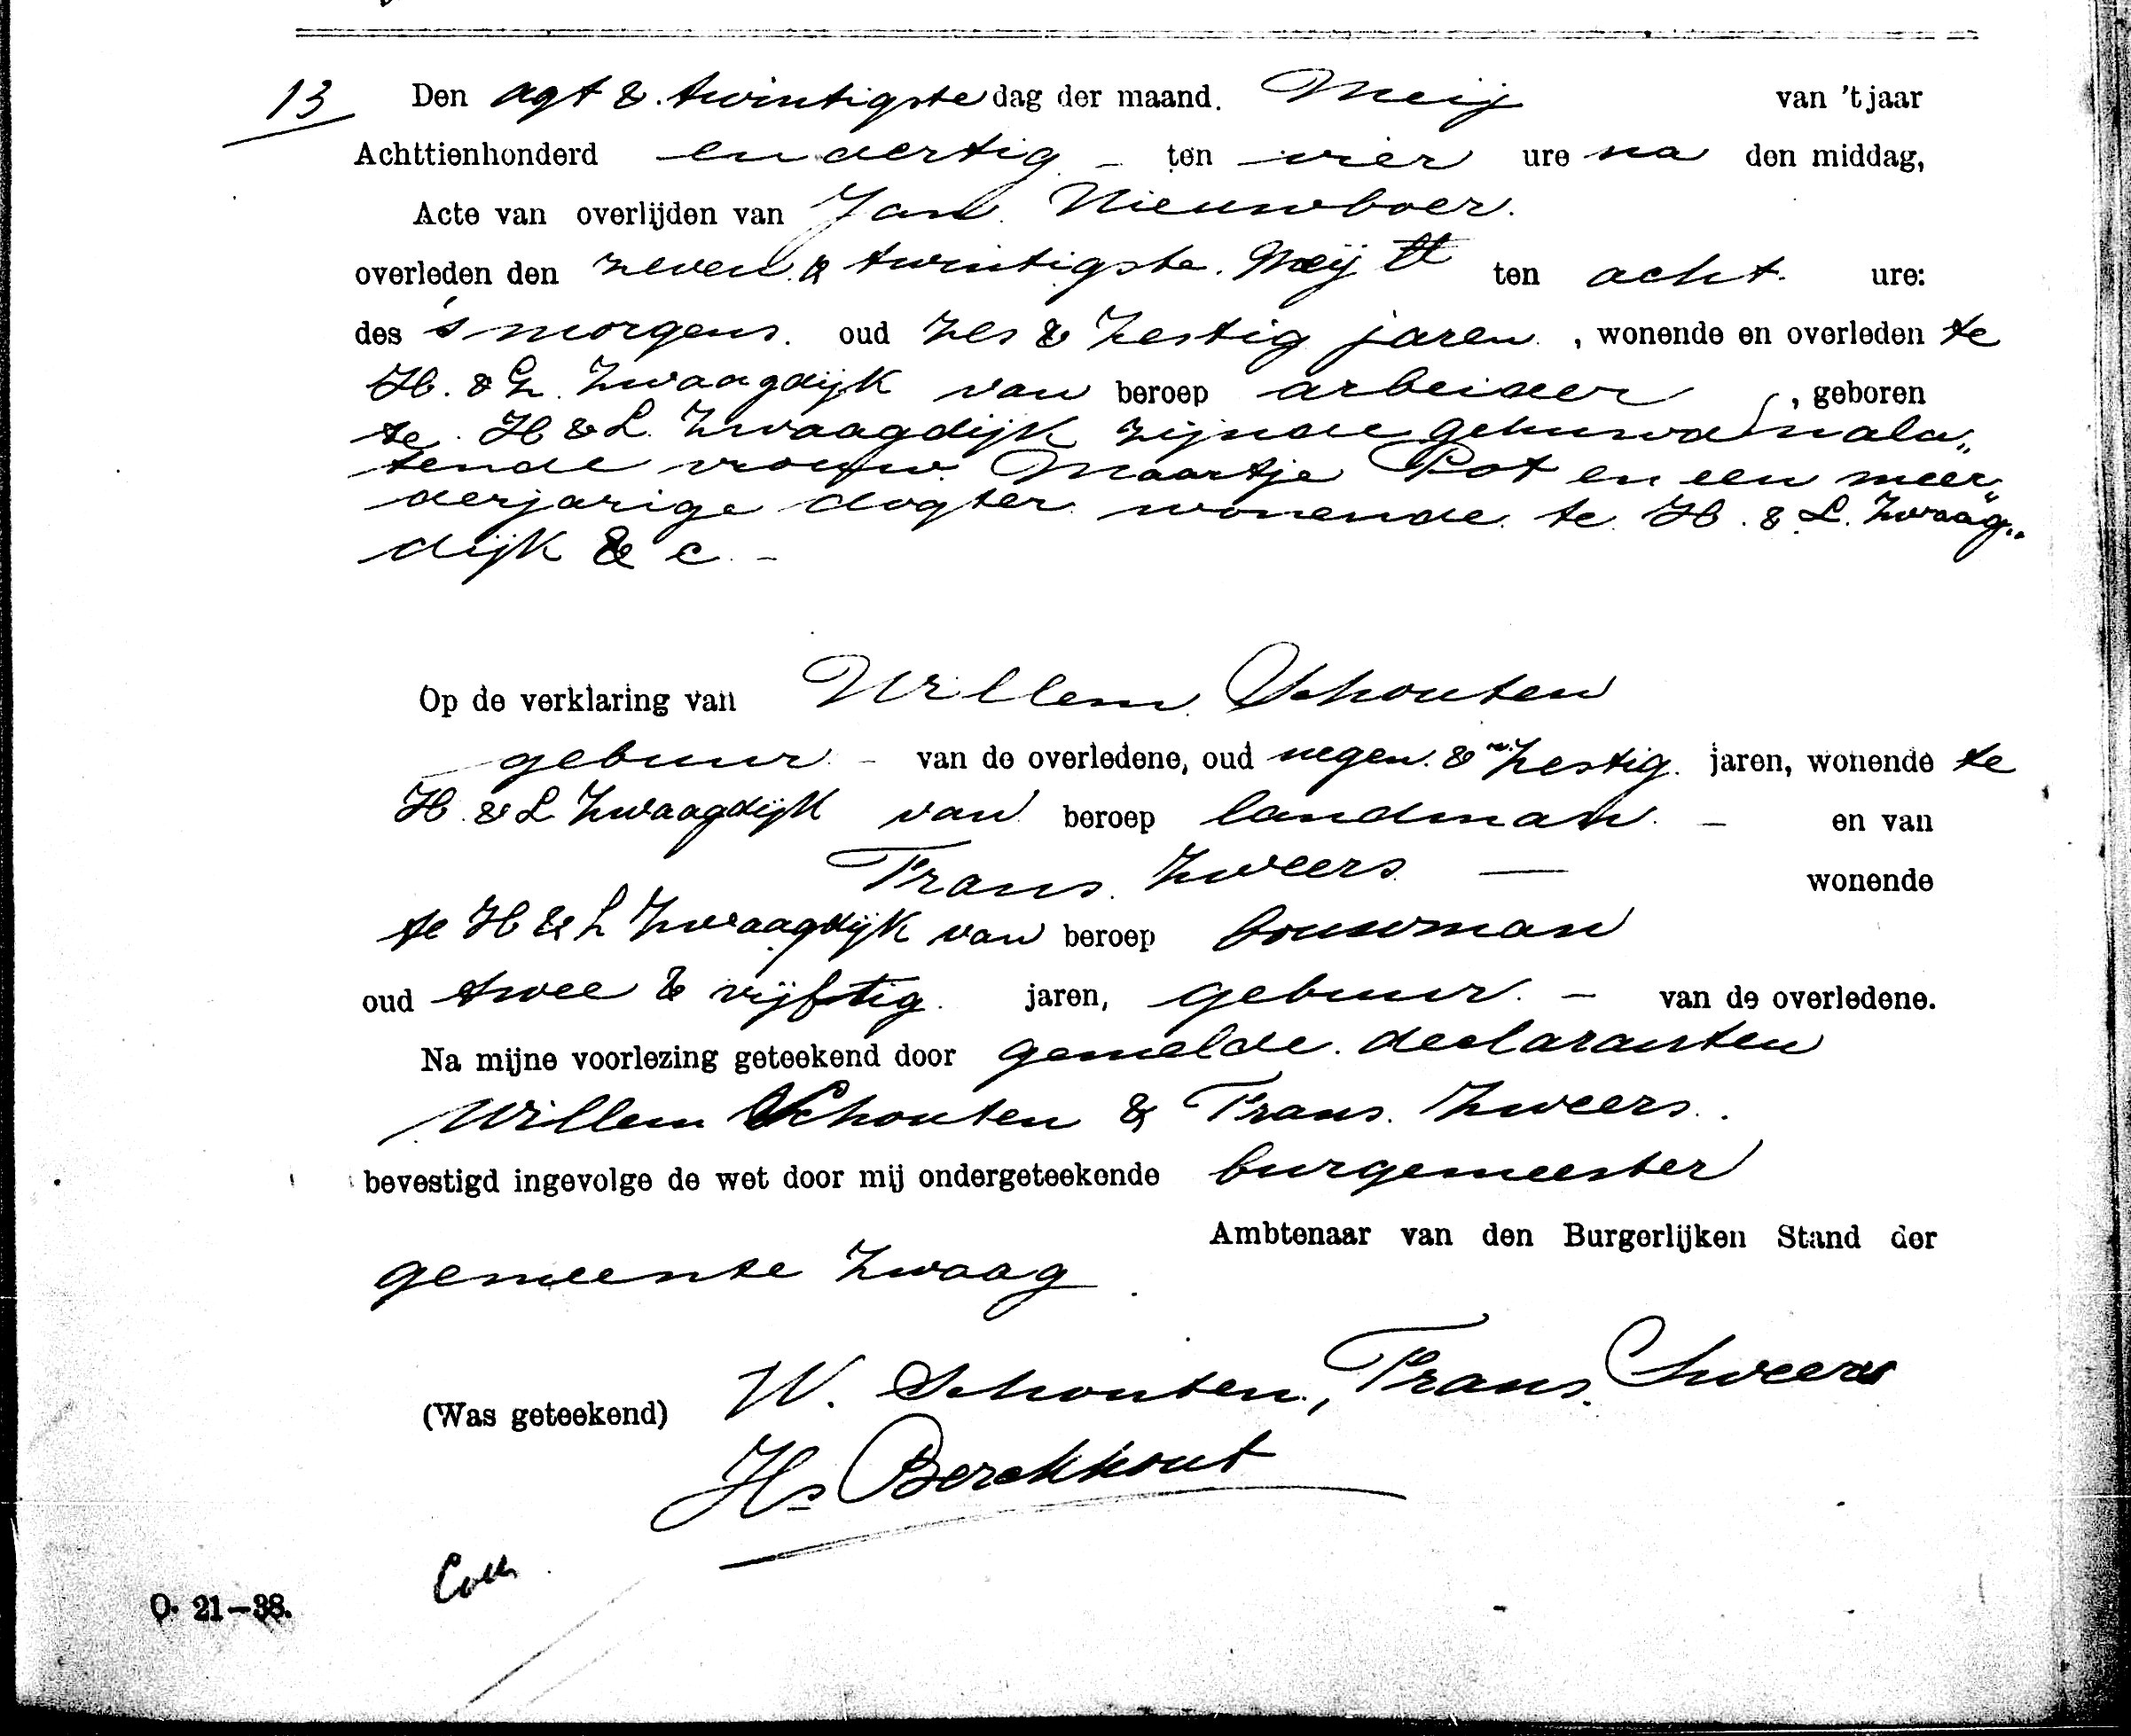 13 Den agt &. twintigste dag der maand. Meij van 't jaar
Achttienhonderd en dertig - ten vier ure na den middag,
Acte van overlijden van Jan Nieuwboer.
overleden den zeven & twintigste. Meij ten acht. ure:
des 's morgens. oud zes & zestig jaren. , wonende en overleden te
H. & L. Zwaagdijk van beroep arbeider , geboren
te. H & L. Zwaagdijk zijnde gehuwd nala„
tende vrouw Maartje Pot en een meer„
derjarige dogter wonende. te H. & L. Zwaag„
dijk & c. -
Op de verklaring van Willem Schouten
gebuur - van de overledene, oud negen. & zestig. jaren, wonende te
H. & L Zwaagdijk van beroep landman. - en van
Frans. Zweers - wonende
te H & L Zwaagdijk van beroep bouwman
oud twee & vijftig. jaren, gebuur. - van de overledene.
Na mijne voorlezing geteekend door gemelde. declaranten
Willem Schouten & Frans. Zweers.
bevestigd ingevolge de wet door mij ondergeteekende burgemeester
Ambtenaar van den Burgerlijken Stand der
gemeente Zwaag
(Was geteekend) W. Schouten, Frans. Sweers
Hs Berckhout
Coll.
O. 21-38.